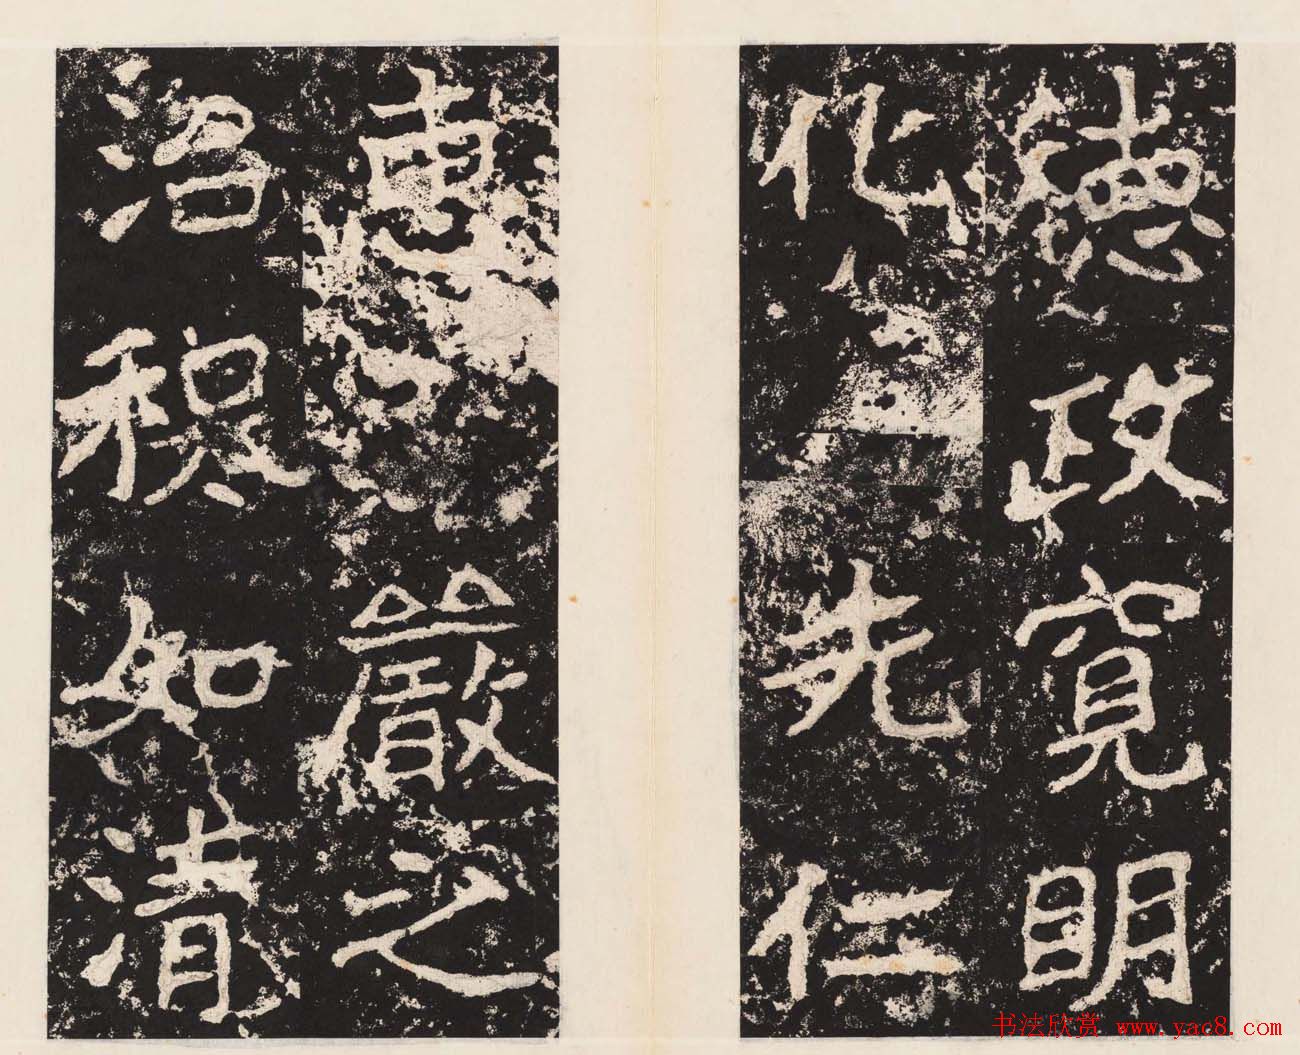 德政寬眀
化先仁
惠嚴之
治穆如清
书法欣赏 www.yac8.com